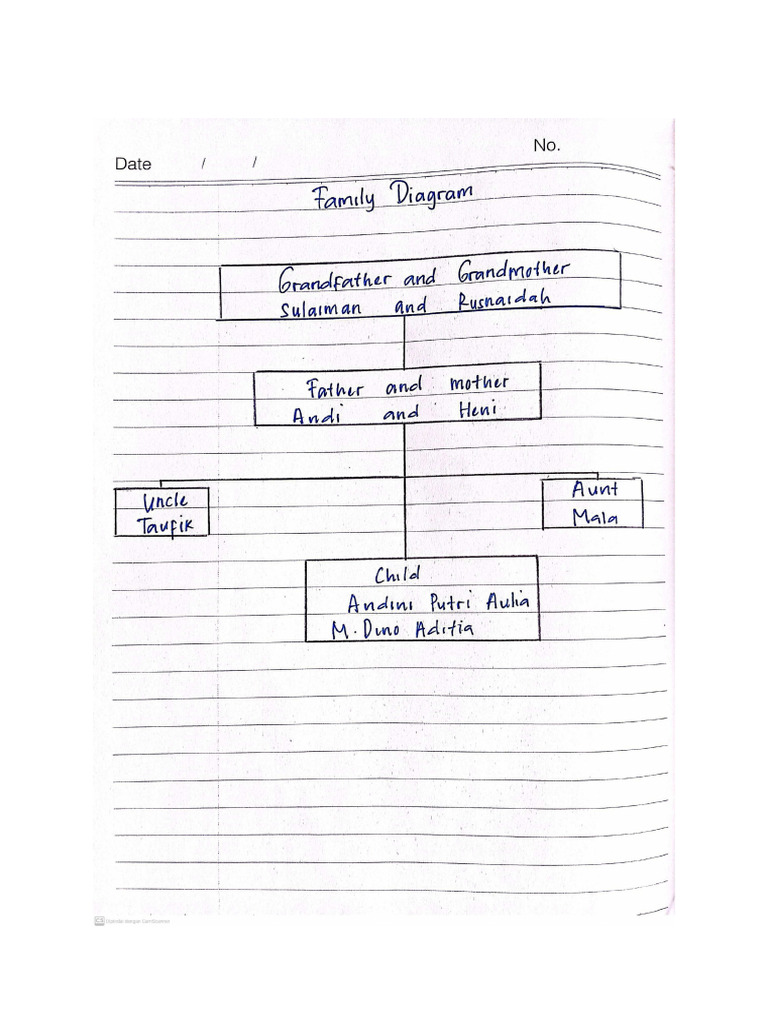 No.
Date / /
Family Diagram
Grandfather and Grandmother
Sulaiman and Rusnaidah
Father and mother
Andi and Heni
Uncle
Taufik
Aunt
Mala
Child
Andini Putri Aulia
M. Dino Aditia
Dipindai dengan CamScanner